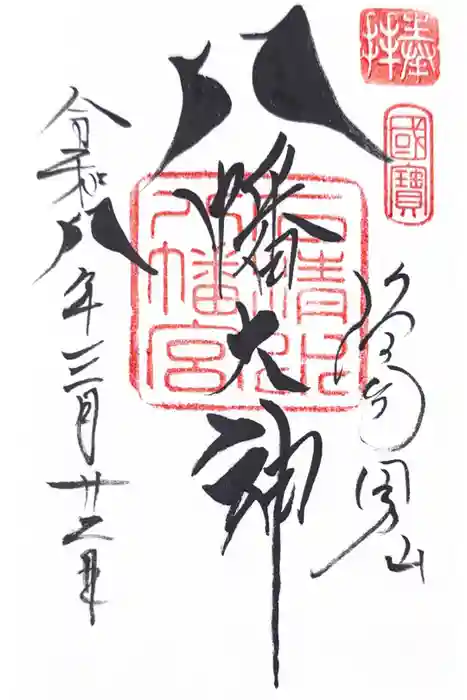 奉拝
國寶
男山
八幡大神
石清水
八幡宮
令和八年三月廿二日